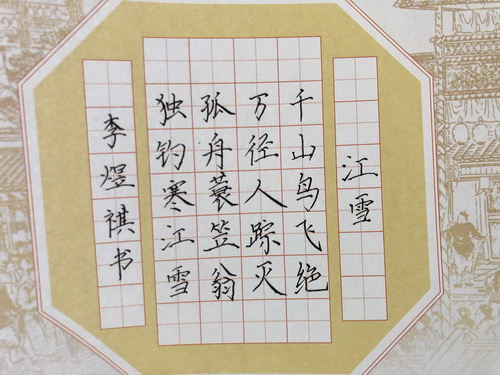 江雪
千山鸟飞绝
万径人踪灭
孤舟蓑笠翁
独钓寒江雪
李煜祺书